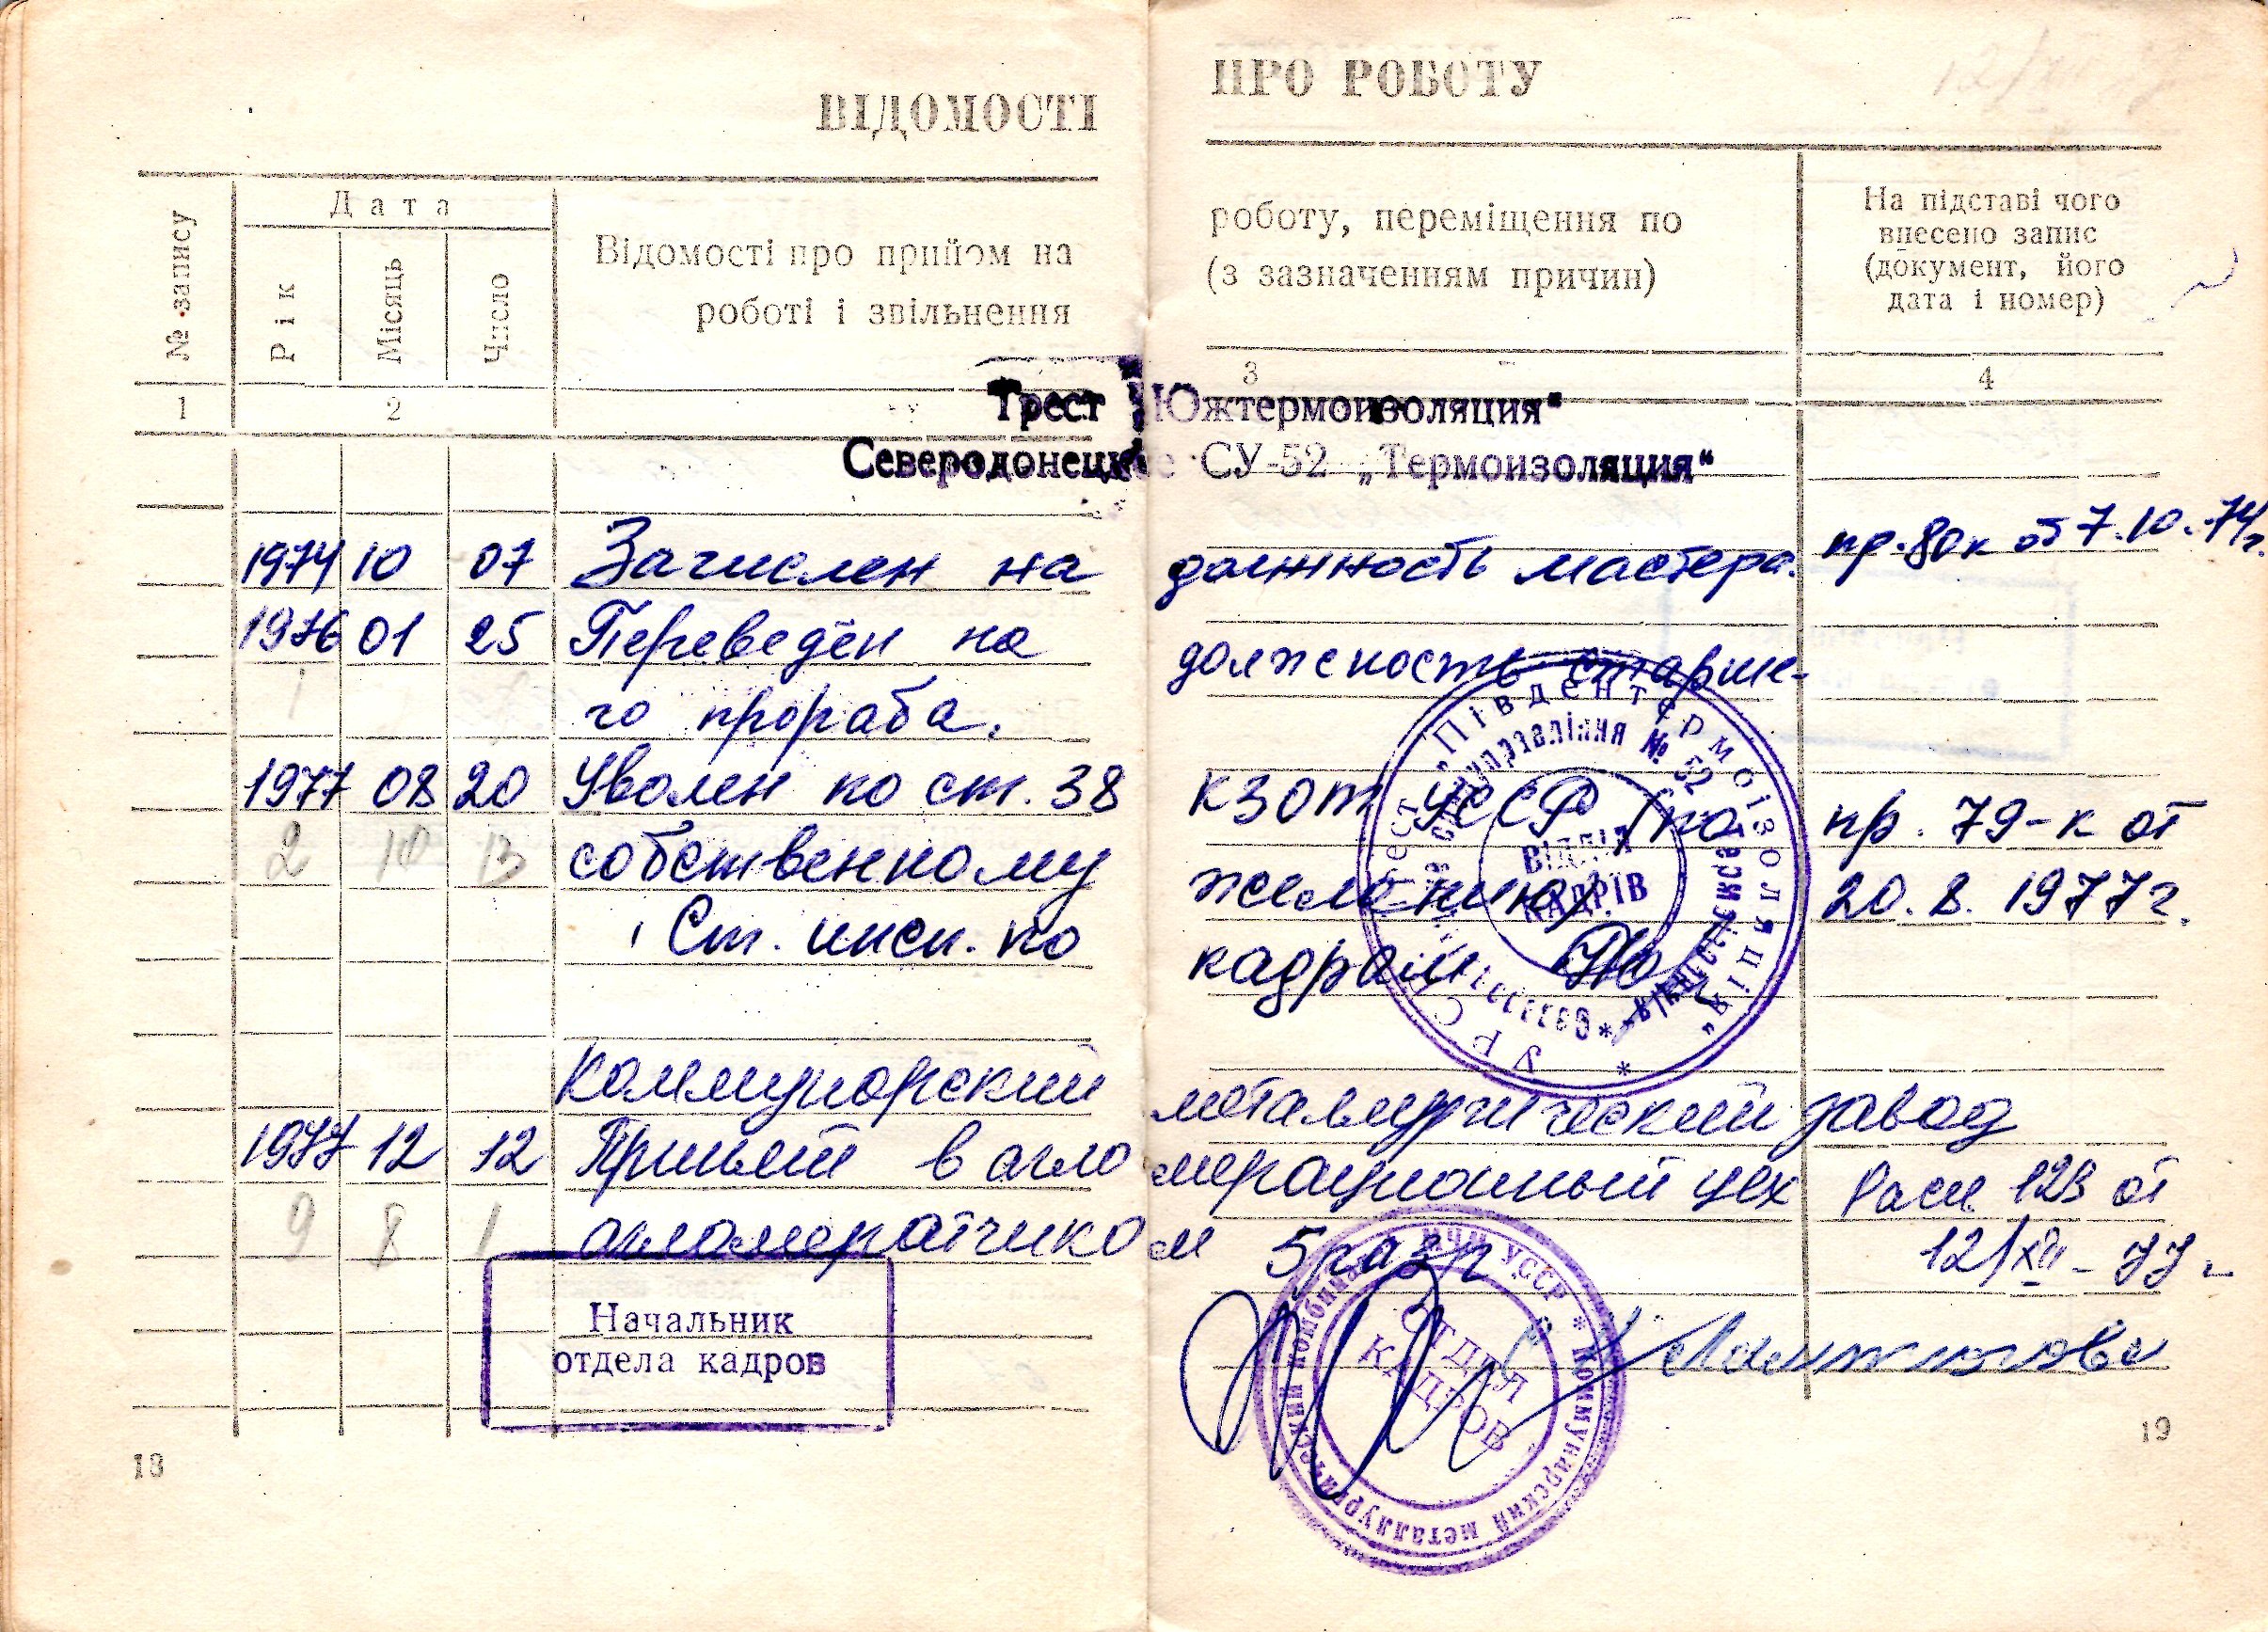 ВІДОМОСТІ ПРО РОБОТУ
№ запису
Дата
Рік
Місяць
Число
Відомості про прийом на роботу, переміщення по
роботі і звільнення (з зазначенням причин)
На підставі чого
внесено запис
(документ, його
дата і номер)
1 2 3 4
Трест „Южтермоизоляция“
Северодонецкое СУ-52 „Термоизоляция“
1974 10 07 Зачислен на должность мастера. пр. 80к от 7.10.74г.
1976 01 25 Переведён на должность старше-
го прораба.
1977 08 20 Уволен по ст. 38 КЗОТ УССР (по пр. 79-к от
2 10 13 собственному желанию). 20.8.1977г.
Ст. инсп. по кадрам
Коммунарский металлургический завод
1977 12 12 Принят в агломерационный цех Расп. 123 от
9 8 1 агломератчиком 5 разр 12/XII-77г
Начальник
отдела кадров
УРСР * Трест "Південтермоізоляція" *
управління № 52
ВІДДІЛ
КАДРІВ
МЧМ УССР * Коммунарский металлургический комбинат
ОТДЕЛ
КАДРОВ
18
19